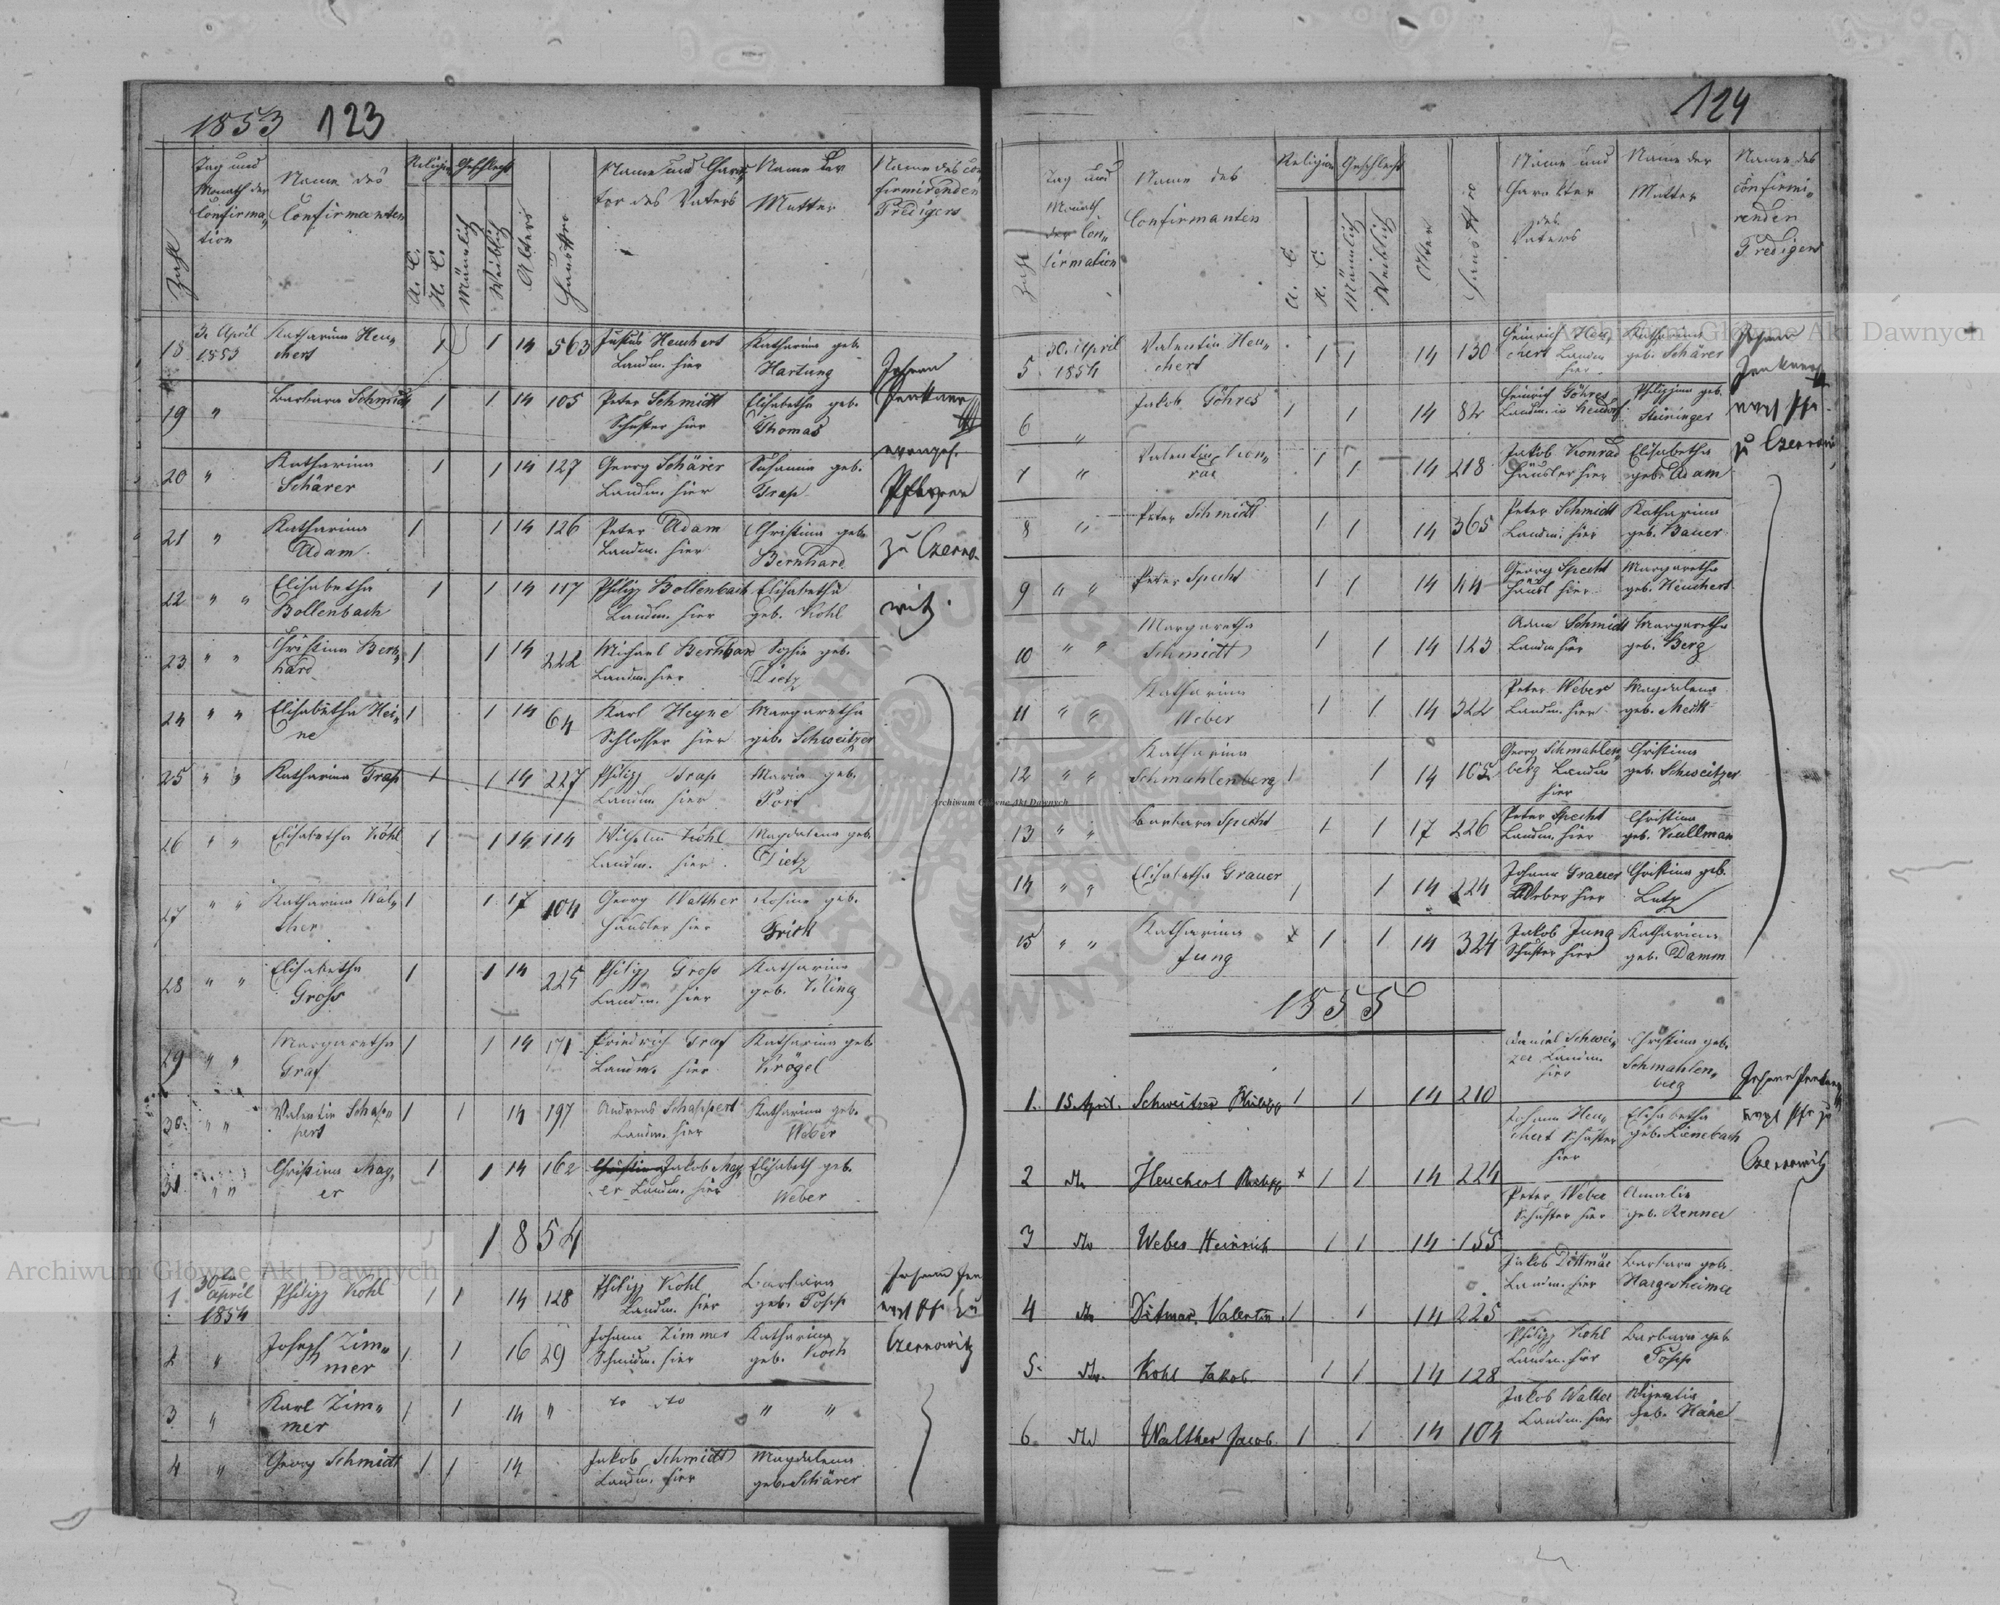 1853 123
Tag und
Monath der
Confirma,
tion
Name des
Confirmanten
Religion
Geschlecht
Name und Charac
tor des Vaters
Name der
Mutter
Name des con
firmirenden
Predigers
Zahl
A. C.
H. C.
Männlich
Weiblich
Alter
Hausnro
18 3. April 1853 Katharina Heu„ chert 1 1 14 563 Justus Heuchert Landm. hier Katharina geb. Hartung
19 „ Barbara Schmidt 1 1 14 105 Peter Schmidt Schuster hier Elisabetha geb. Thomas
20 „ Katharina Schärer 1 1 14 127 Georg Schärer Landm. hier Susanna geb. Gräf
21 „ Katharina Adam 1 1 14 126 Peter Adam Landm. hier Christina geb. Bernhard
22 „ „ Elisabetha Bollenbach 1 1 14 117 Philipp Bollenbach Landm. hier Elisabetha geb. Kohl
23 „ „ Christina Bern„ hard 1 1 14 222 Michael Bernhard Landm. hier Sophie geb. Dietz
24 „ „ Elisabetha Hei„ ne 1 1 14 64 Karl Heyne Schlosser hier Margaretha geb. Schweitzer
25 „ „ Katharina 1 1 14 227 Philipp Landm. hier Maria geb.
26 „ „ Elisabetha Kohl 1 1 14 114 Wilhelm Kohl Landm. hier Magdalena geb. Dietz
27 „ „ Katharina Wal„ ther 1 1 17 104 Georg Walther Häusler hier Rosina geb.
28 „ „ Elisabetha Gross 1 1 14 225 Philipp Gross Landm. hier Katharina geb. Kling
29 „ „ Margaretha Graf 1 1 14 171 Friedrich Graf Landm. hier Katharina geb. Krögel
30. „ „ Valentin Schap„ pert 1 1 14 197 Andreas Schappert Landm. hier Katharina geb. Weber
31 „ „ Christina May„ er 1 1 14 162 Christina Jakob May„ er Landm. hier Elisabeth geb. Weber
Johann
evangel.
Pfarrer
zu Czerno„
witz.
1854
1 30ten April 1854 Philipp Kohl 1 1 14 128 Philipp Kohl Landm. hier Barbara geb.
2 „ Joseph Zim„ mer 1 1 16 29 Johann Zimmer Schmidm. hier Katharina geb. Koch
3 „ Karl Zim„ mer 1 1 14 „ „ „
4 „ Georg Schmidt 1 1 14 Jakob Schmidt Landm. hier Magdalena geb. Schärer
Johann
Czernowitz
124
Zahl
Tag und
Monath
der Con„
firmation
Name des
Confirmanten
Religion
Geschlecht
A. C.
H. C.
Männlich
Weiblich
Alter
Hausnro
Name und
Charakter
des
Vaters
Name der
Mutter
Name des
confirmi„
renden
Predigers
5 30. April 1854 Valentin Heu„ chert 1 1 14 130 Heinrich Heu„ chert Landm hier Katharina geb. Schärer
6 „ Jakob Göhres 1 1 14 82 Heinrich Göhres Landm. Philippina geb. Steininger
7 „ Valentin Kon„ rad 1 1 14 218 Jakob Konrad Häusler hier Elisabetha geb. Adam
8 „ Peter Schmidt 1 1 14 365 Peter Schmidt Landm. hier Katharina geb. Bauer
9 „ „ Peter Specht 1 1 14 44 Georg Specht Häusl hier Margaretha geb. Heuchert
10 „ „ Margaretha Schmidt 1 1 14 123 Adam Schmidt Landm hier Margaretha geb. Berg
11 „ „ Katharina Weber 1 1 14 322 Peter Weber Landm. hier Magdalena geb.
12 „ „ Katharina Schmahlenberg 1 1 14 165 Georg Schmahlen„ berg Landm hier Christina geb. Schweitzer
13 „ „ Barbara Specht 1 1 17 226 Peter Specht Landm. hier Christina geb. Kullman
14 „ „ Elisabetha Grauer 1 1 14 224 Johann Grauer Weber hier Christina geb. Lutz
15 „ „ Katharina Jung x 1 1 14 324 Jakob Jung Schuster hier Katharina geb. Damm
Johann
zu Czernowi
1855
1. 15. April. Schweitzer Philipp 1 1 14 210 Daniel Schwei„ zer Landm. hier Christina geb. Schmahlen„ berg
2 dto Heuchert Philipp x 1 1 14 224 Johann Heu„ chert Schuster hier Elisabetha geb. Liensbach
3 dto Weber Heinrich 1 1 14 155 Peter Weber Schuster hier Amalie geb. Renner
4 dto Ditmar Valentin 1 1 14 225 Jakob Dittmar Landm. hier Barbara geb. Hargesheimer
5. dto. Kohl Jakob 1 1 14 128 Philipp Kohl Landm. hier Barbara geb.
6. dto Walther Jacob. 1 1 14 104 Jakob Walter Landm. hier geb.
Johann
Czernowitz
Archiwum Główne Akt Dawnych
Archiwum Główne Akt Dawnych
Archiwum Główne Akt Dawnych